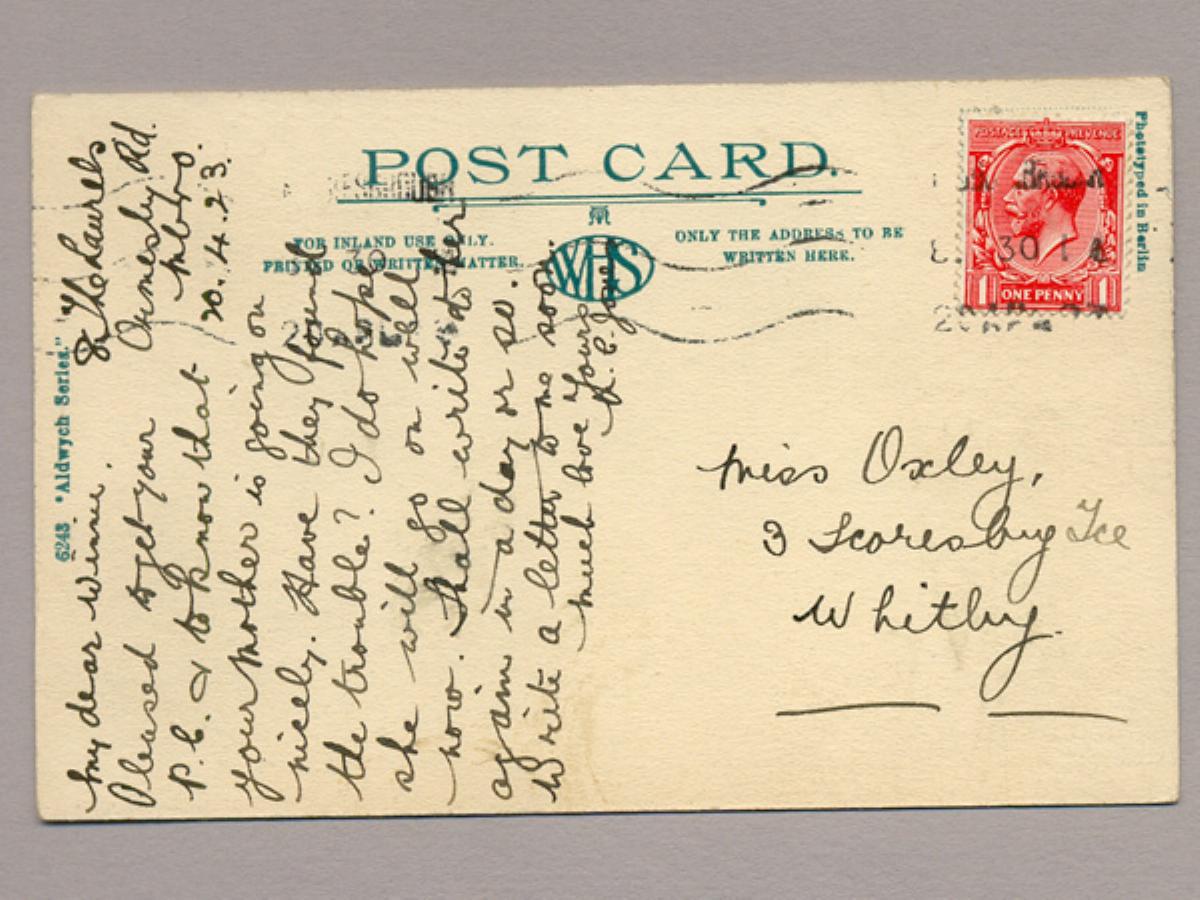 POST CARD.
FOR INLAND USE ONLY.
PRINTED OR WRITTEN MATTER.
WHS
ONLY THE ADDRESS TO BE
WRITTEN HERE.
POSTAGE REVENUE
1 ONE PENNY 1
30
Phototyped in Berlin
6243 "Aldwych Series."
The Laurels
Ormesby Rd.
Mbro.
20.4.23.
My dear Winnie.
Pleased to get your
P.C. & to know that
your Mother is going on
nicely. Have they found
the trouble? I do hope
she will go on well
now. Shall write to her
again in a day or so.
Write a letter to me soon.
Much love Yours
Miss Oxley,
3 Scoresby Tce
Whitby.